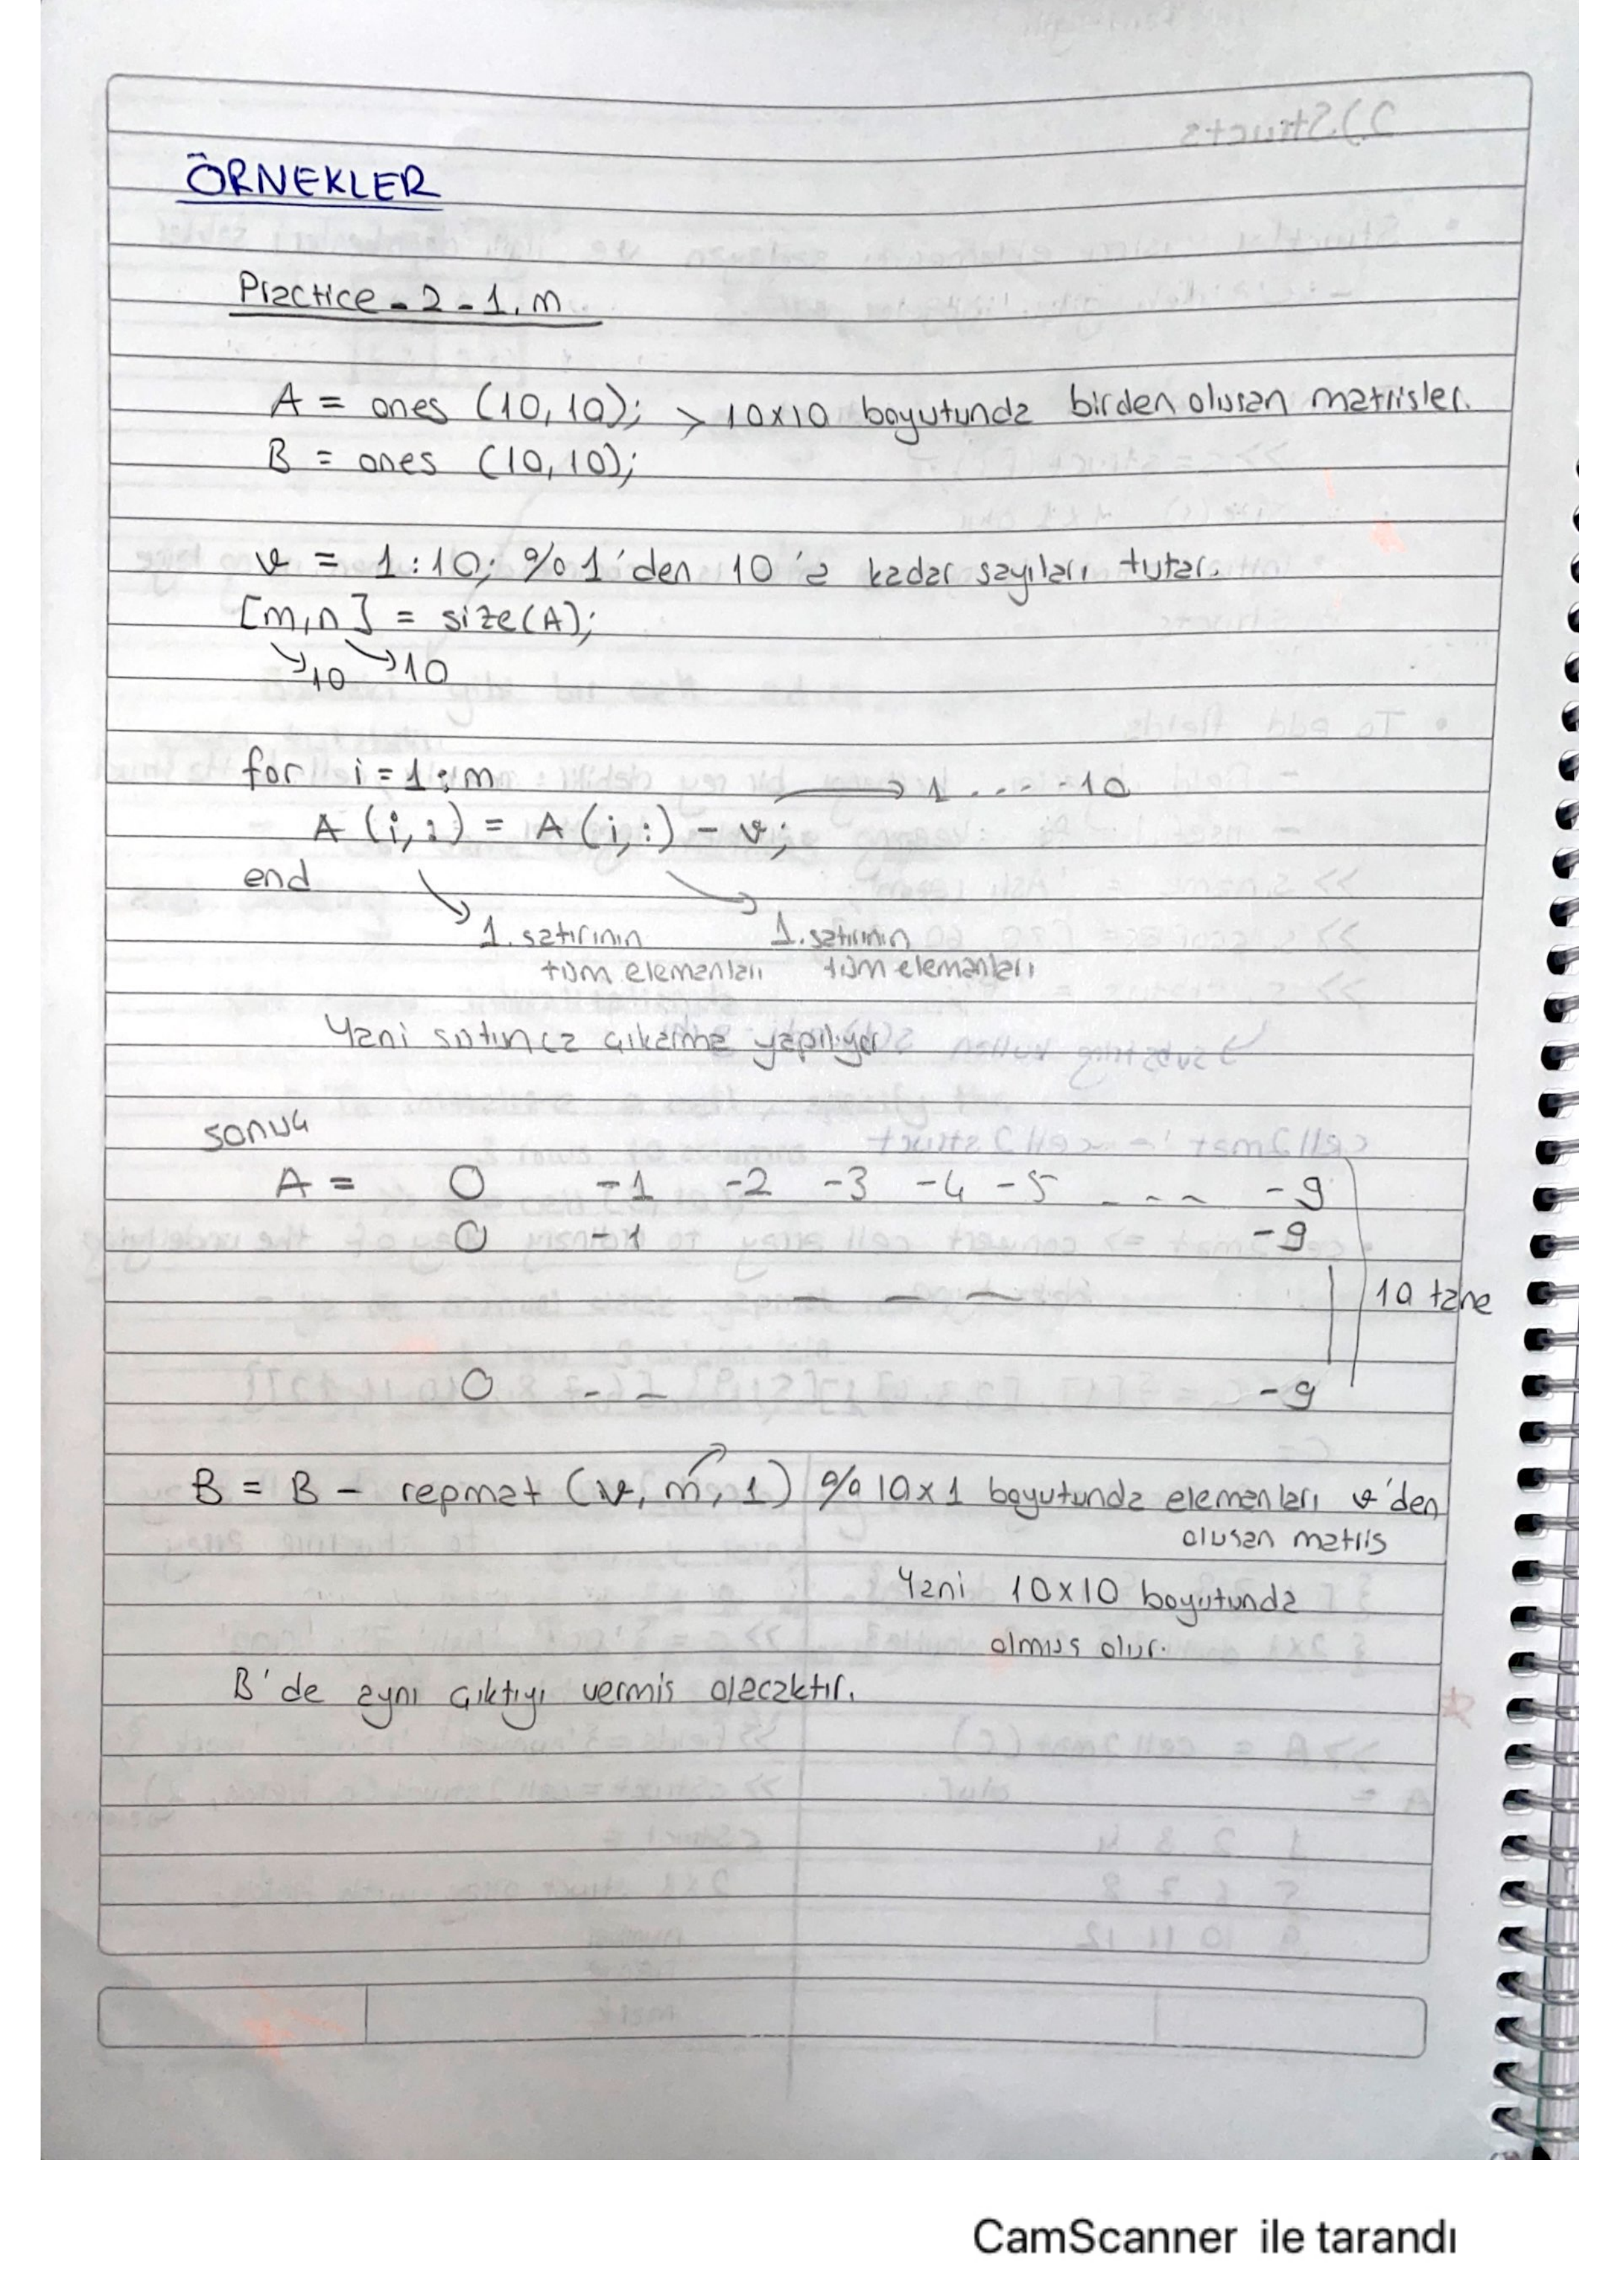 ÖRNEKLER
Practice-2-1.m
A = ones (10,10); > 10x10 boyutunda birden olusan matrisler.
B = ones (10,10);
v = 1:10; % 1'den 10'a kadar sayıları tutar.
[m,n] = size(A);
10 10
for i = 1:m
1 . . . . 10
A (i,:) = A (i,:) - v;
end
1. satırının 1. satırının
tüm elemanları tüm elemanları
Yani çıkarma yapılıyor
sonuç
A = 0 -1 -2 -3 -4 -5 _ _ _ -9
0 -1 -9
_ _ _ 10 tane
0 - - -9
B = B - repmat (v, m, 1) % 10x1 boyutunda elemanları v'den
olusan matris
Yani 10x10 boyutunda
olmus olur.
B'de aynı çıktıyı vermis olacaktır.
CamScanner ile tarandı